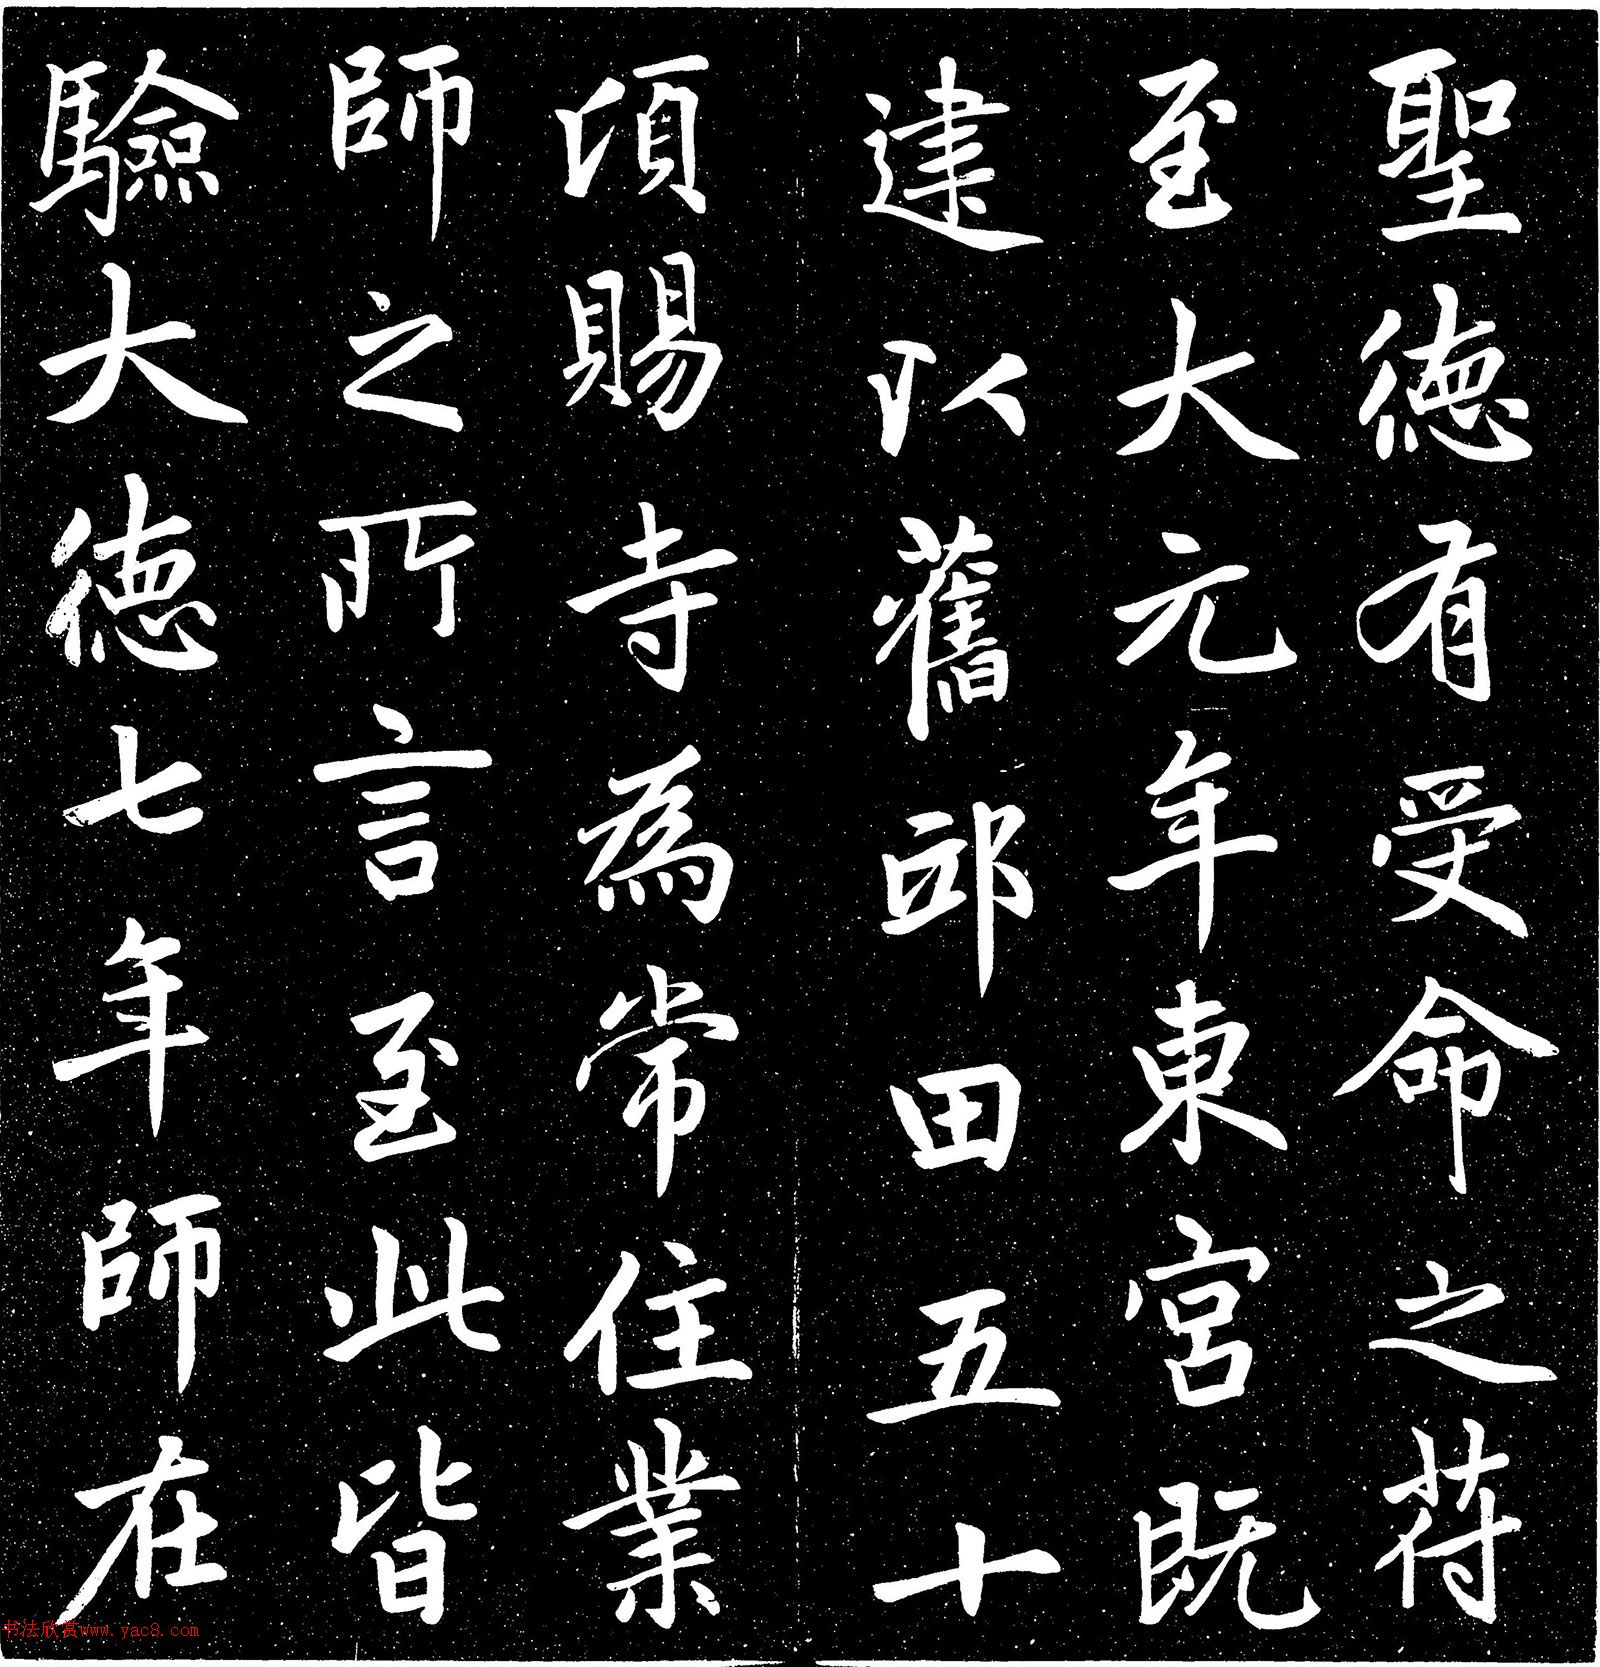 聖德有受命之符
至大元年東宮既
建以舊邸田五十
頃賜寺為常住業
師之所言至此皆
驗大德七年師在
书法欣赏www.yac8.com